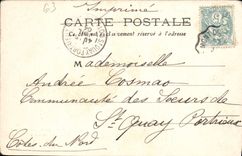 63
Imprimé
CARTE POSTALE
Ce côté est exclusivement réservé à l'adresse
Mademoiselle
Andrée Cosmao
Communauté des Sœurs de
St Quay Portrieux
Côtes du Nord